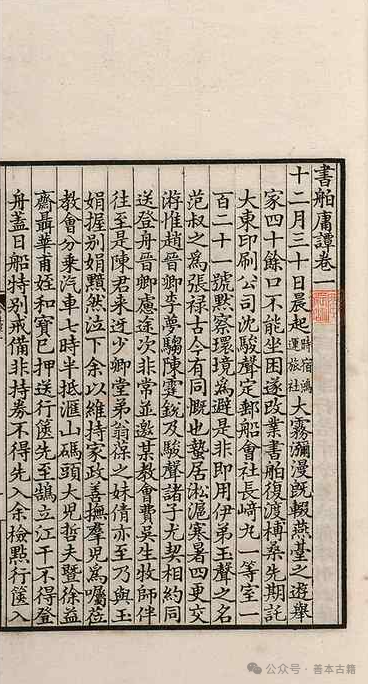 書舶庸譚卷一
十二月三十日晨起時宿鴻運旅社大霧瀰漫旣輟燕臺之遊舉
家四十餘口不能坐困遂改業書舶復渡榑桑先期託
大東印刷公司沈駿聲定郵船會社長崎丸一等室一
百二十一號默察環境爲避是非即用伊弟玉聲之名
范叔之爲張祿古今有同慨也蟄居淞滬寒暑四更交
游惟趙晉卿李夢騶陳霆銳及駿聲諸子尤契相約同
送登舟晉卿慮途次非常並邀某教會費吳生牧師伴
往至是陳君來迓少卿堂弟翁葆之妹倩亦至乃與玉
娟握别娟黯然泣下余以維持家政善撫羣兒爲囑蒞
教會分乘汽車七時半抵滙山碼頭大兒哲夫暨徐益
齋聶華甫姪和寶巳押送行篋先至鵠立江干不得登
舟蓋日船特别戒備非持劵不得先入余檢點行篋入
公众号 · 善本古籍